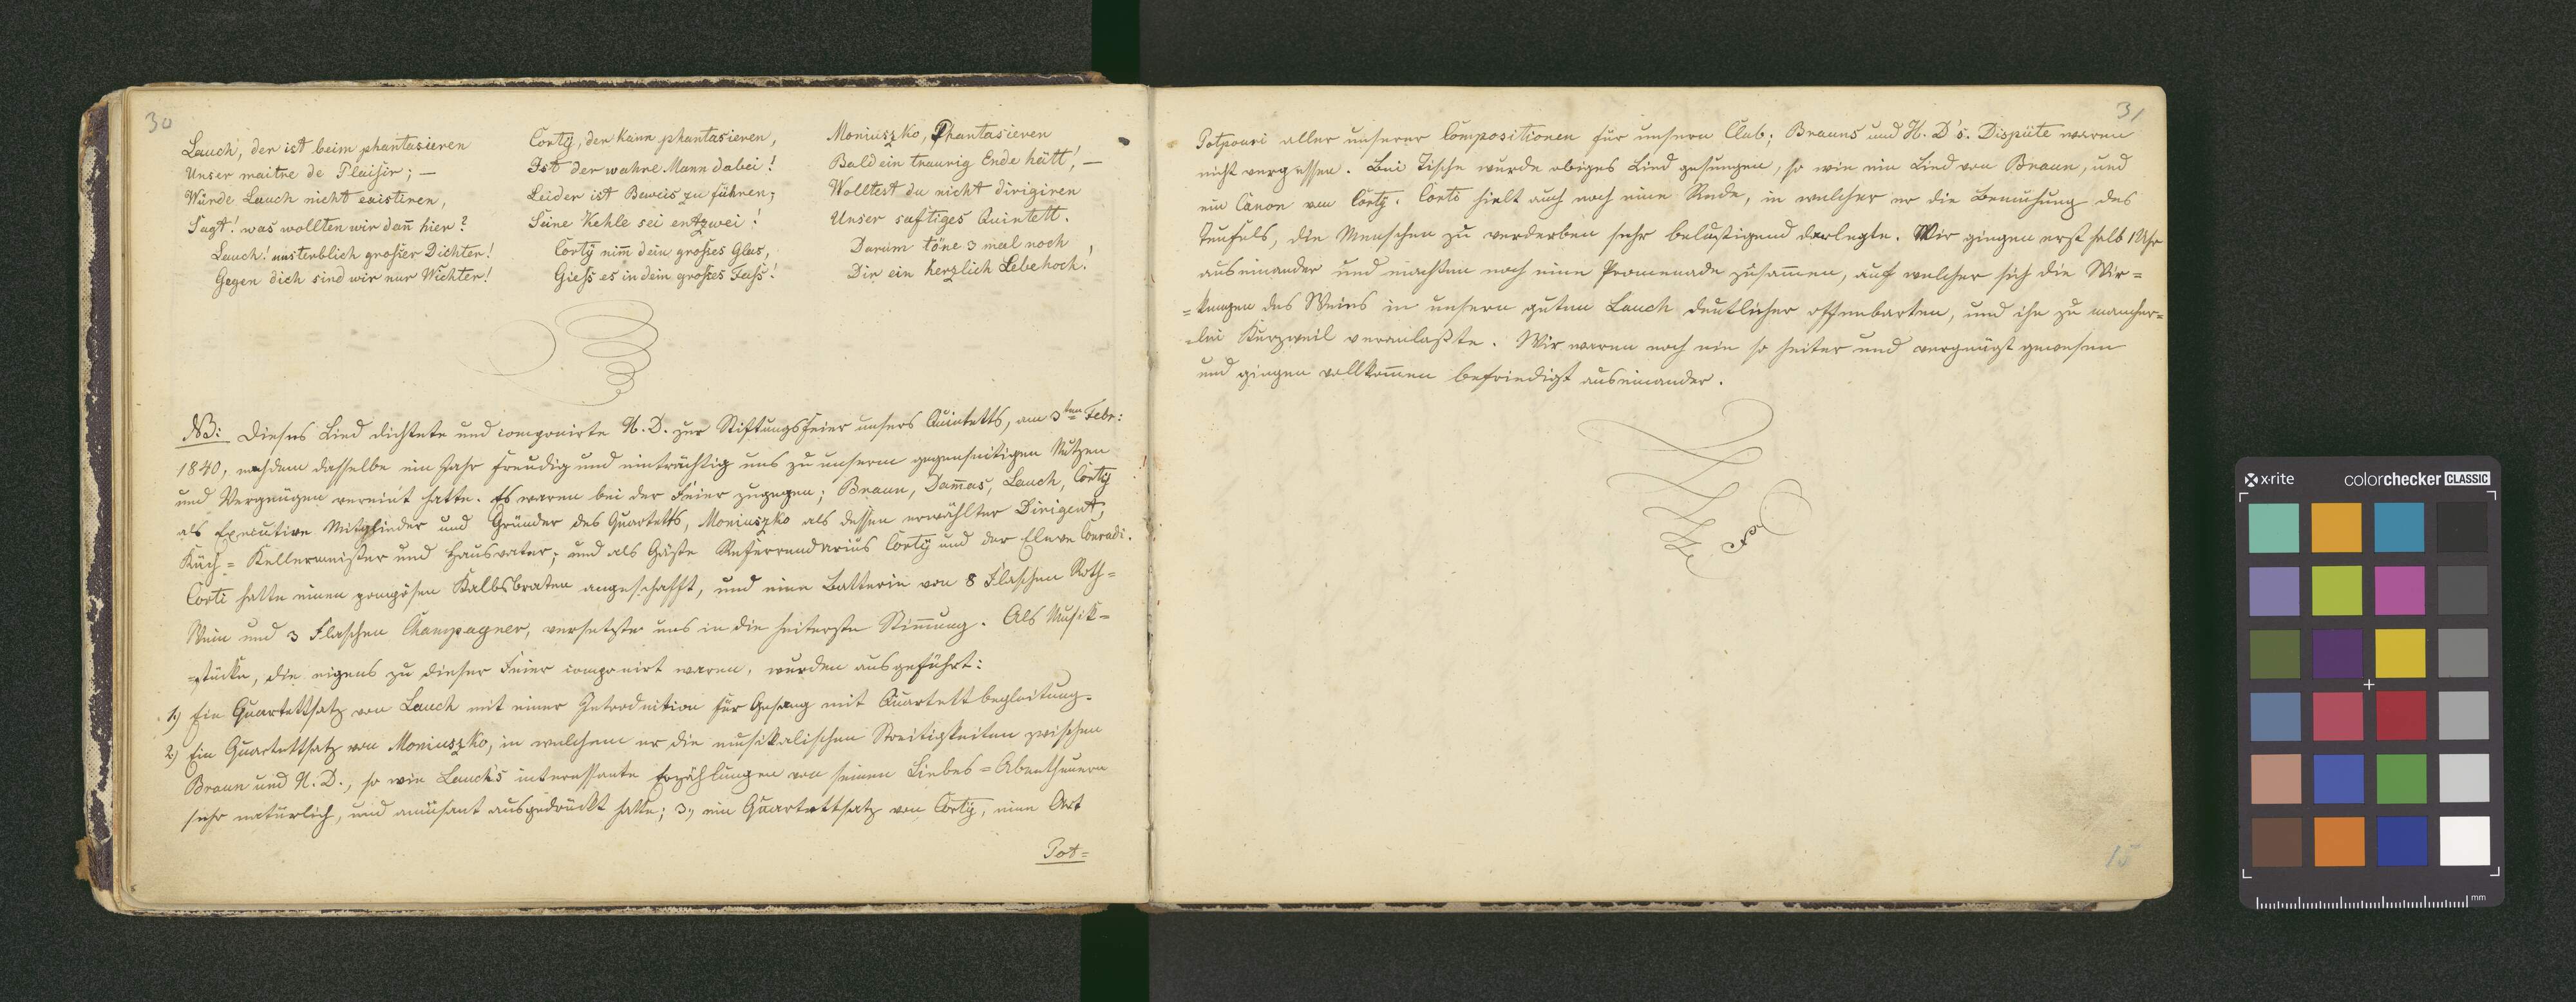 30
Lauch, der ist beim phantasieren
Unser maitre de Plaisir; —
Würde Lauch nicht existiren,
Sagt! was wollten wir dan̄ hier?
Lauch! unsterblich grosser Dichter!
Gegen dich sind wir nur Wichter!
Corty, der kann phantasieren,
Ist der wahre Mann dabei!
Leider ist Beweis zu führen;
Seine Kehle sei entzwei!
Corty nim̄ dein grosses Glas,
Giess es in dein grosses Fass!
Moniuszko, Phantasieren
Bald ein traurig Ende hätt', —
Wolltest du nicht dirigiren
Unser saftiges Quintett.
Darum töne 3 mal noch
Dir ein herzlich Lebehoch!
NB: Dieses Lied dichtete und componirte H. D. zur Stiftungsfeier unsers Quintetts, am 3ten Febr:
1840, nachdem dasselbe ein Jahr freudig und einträchtig uns zu unserm gegenseitigen Nutzen
und Vergnügen vereint hatte. Es waren bei der Feier zugegen; Braun, Dam̄as, Lauch, Corty
als Executive Mitglieder und Gründer des Quartetts, Moniuszko als dessen erwählter Dirigent,
Küch = Kellermeister und Hausvater; und als Gäste Referendarius Corty und der Eleve Conradi.
Corti hatte einen pompösen Kalbsbraten angeschafft, und eine Batterie von 8 Flaschen Roth=
Wein und 3 Flaschen Champagner, versetzte uns in die heiterste Stim̄ung. Als Musik=
=stücke, die eigens zu dieser Feier componirt waren, wurden ausgeführt:
1.) Ein Quartettsatz von Lauch mit einer Introduction für Gesang mit Quartettbegleitung.
2.) Ein Quartettsatz von Moniuszko, in welchem er die musikalischen Streitigkeiten zwischen
Braun und H. D., so wie Lauch's interessante Erzählungen von seinen Liebes=Abentheuern
sehr natürlich, und amüsant ausgedrückt hatte; 3.) ein Quartettsatz von Corty, eine Art
Pot=
31
Potpouri aller unserer Compositionen für unsern Club; Brauns und H. D's. Dispüte waren
nicht vergessen. Bei Tische wurde obiges Lied gesungen, so wie ein Lied von Braun, und
ein Canon von Corty. Corti hielt auch noch eine Rede, in welcher er die Bemühung des
Teufels, die Menschen zu verderben sehr belustigend darlegte. Wir gingen erst halb 1 Uhr
auseinander und machten noch eine Promenade zusam̄en, auf welcher sich die Wir=
=kungen des Weins in unserm guten Lauch deutlicher offenbarten, und ihn zu mancher=
=lei Kurzweil veranlasste. Wir waren noch nie so heiter und vergnügt gewesen
und gingen vollkom̄en befriedigt auseinander.
15
x·rite
colorchecker CLASSIC
mm